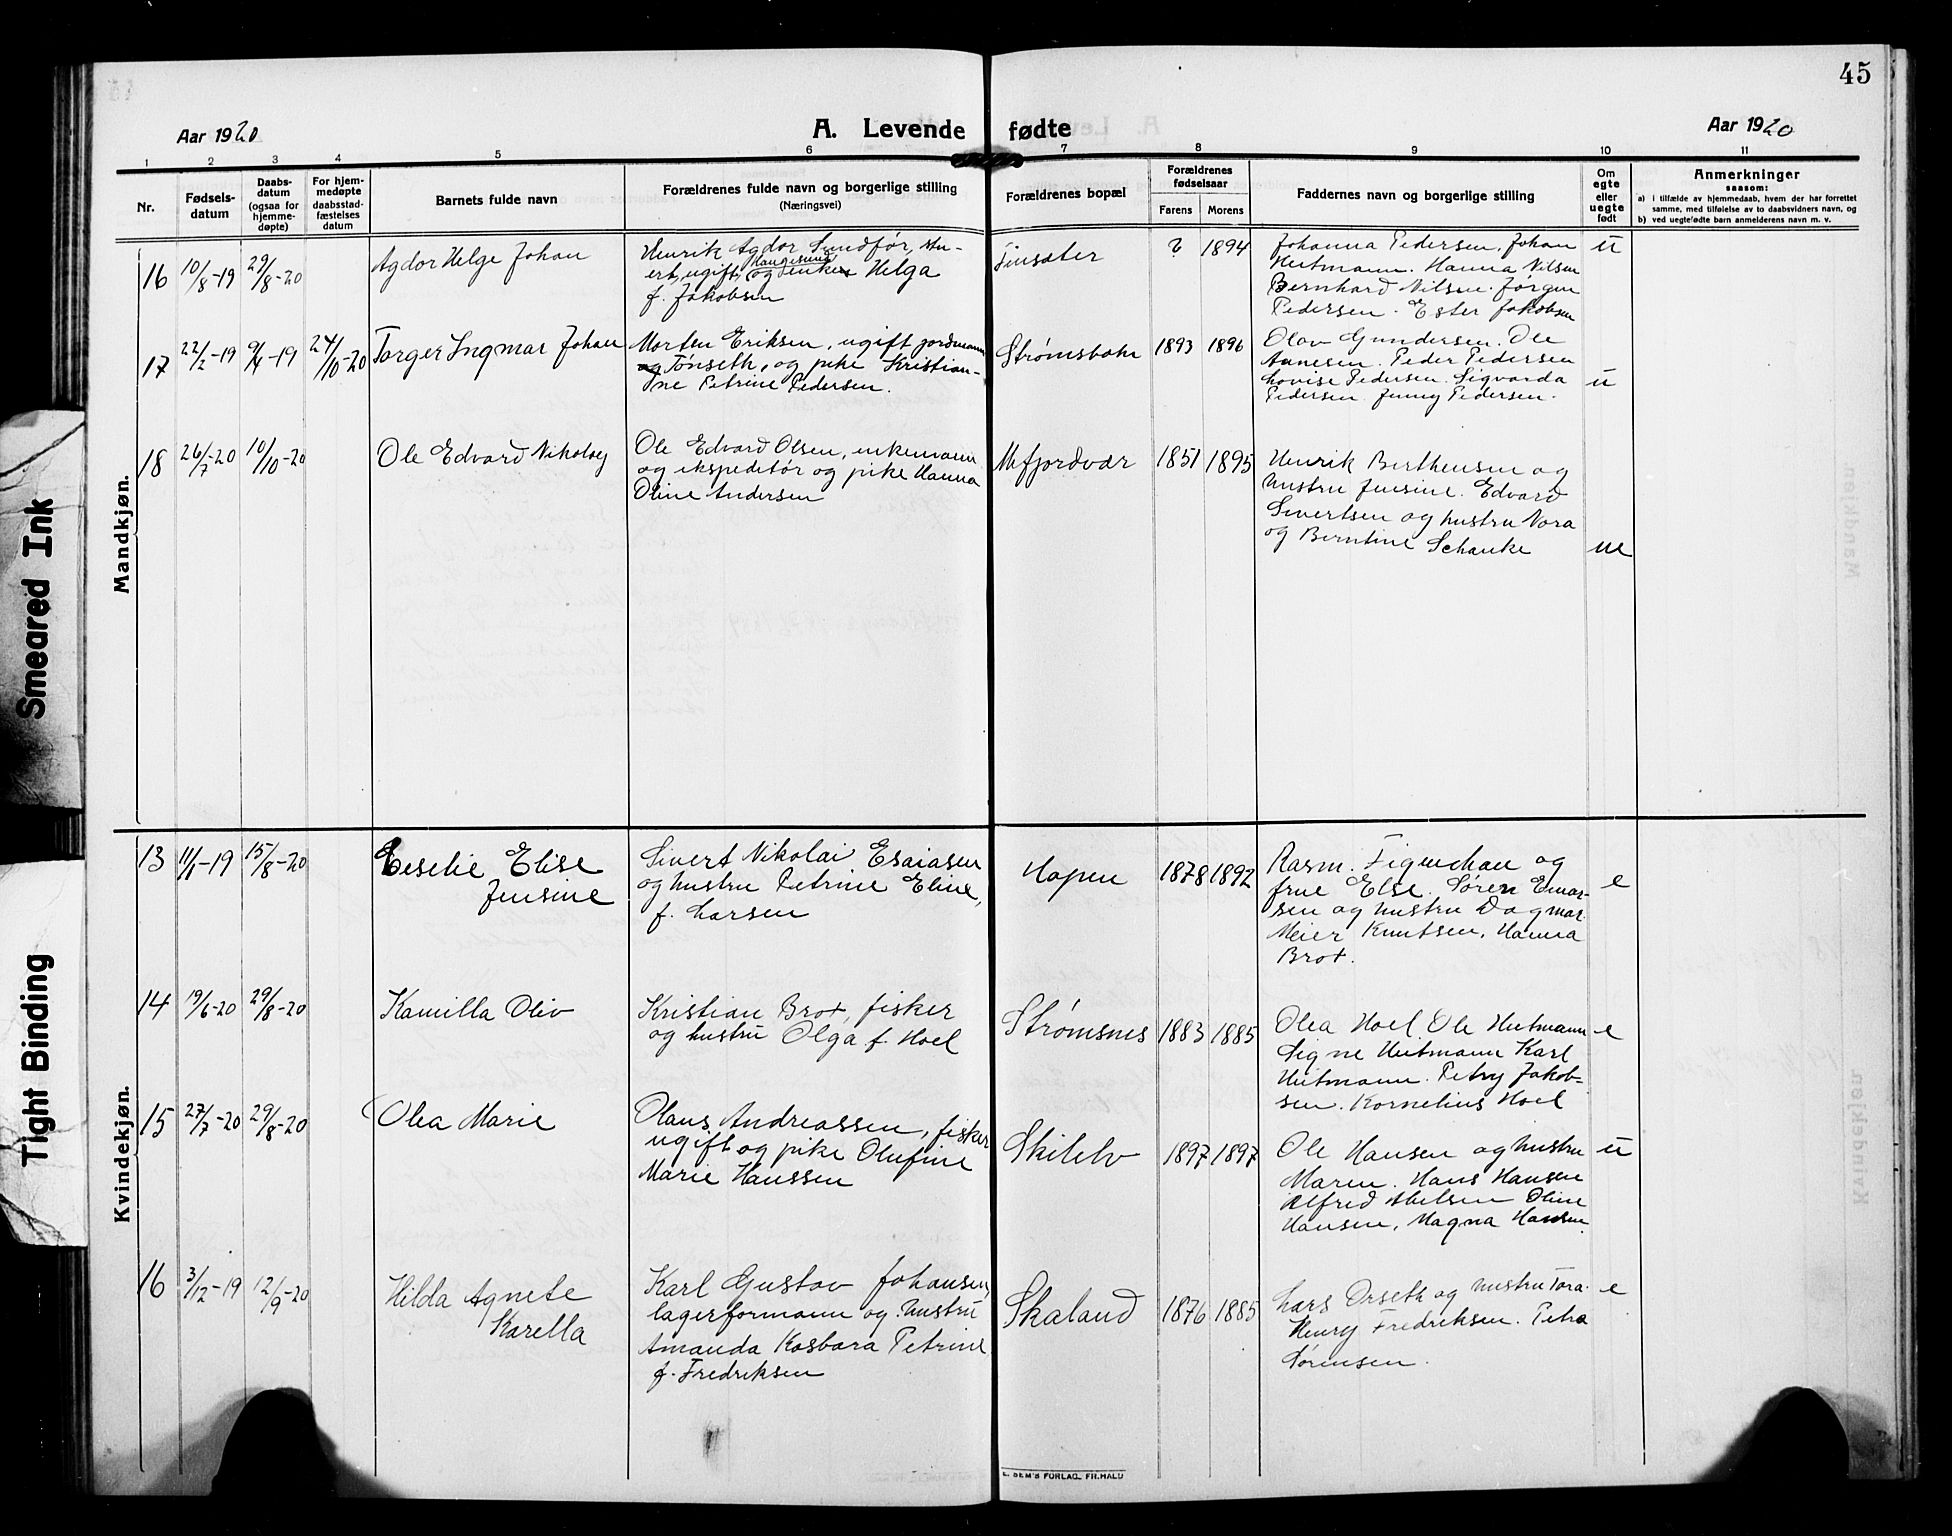 45
Aar 1920
A. Levende fødte
Aar 1920
1 2 3 4 5 6 7 8 9 10 11
Nr.
Fødsels-
datum
Daabs-
datum
(ogsaa for
hjemme-
døpte)
For hjem-
medøpte
daabsstad-
fæstelses
datum
Barnets fulde navn
Forældrenes fulde navn og borgerlige stilling
(Næringsvei)
Forældrenes bopæl
Forældrenes
fødselsaar
Farens Morens
Faddernes navn og borgerlige stilling
Om
egte
eller
uegte
født
Anmerkninger
saasom:
a) i tilfælde av hjemmedaab, hvem der har forrettet
samme, med tilføielse av to daabsvidners navn, og
b) ved uegtefødte barn anmelderens navn m. v.
Mandkjøn.
16 10/8-19 29/8-20
Agdor Helge Johan
Henrik Agdor Sundfør, stu-
ert, ugift, Haugesund og enke Helga
f. Jakobsen
Finsæter
? 1894
Johanna Pedersen, Johan
Heitmann. Hanna Nilsen
Bernhard Nilsen. Jørgen
Pedersen. Ester Jakobsen
u
17 22/2-19 9/4-19 24/10-20
Torger Ingmar Johan
Morten Eriksen, ugift jordmann
og Tønseth, og pike Kristian-
ne Petrine Pedersen.
Strømsbotn
1893 1896
Olav Gundersen. Ole
Aanesen. Peder Pedersen
Lovise Pedersen. Sigvarda
Pedersen. Jenny Pedersen.
u
18 26/7-20 10/10-20
Ole Edvard Nikolay
Ole Edvard Olsen, enkemann
og ekspeditør og pike Hanna
Oline Andersen
Mefjordvær
1851 1895
Henrik Berthensen og
hustru Jensine. Edvard
Sivertsen og hustru Nora
og Berntine Schanke
ue
Kvindekjøn.
13 11/1-19 15/8-20
Eeselie Elise
Jensine
Sivert Nikolai Esaiasen
og hustru Petrine Eline,
f. Larsen
Hopen
1878 1892
Rasm. Figenchau og
frue Else. Søren Einar-
sen og hustru Dagmar.
Meier Knutsen, Hanna
Brox.
e
14 19/6-20 29/8-20
Kamilla Oliv
Kristian Brox, fisker
og hustru Olga f. Hoel
Strømsnes
1883 1885
Olea Hoel Ole Heitmann
Signe Heitmann Karl
Heitmann. Petry Jakob-
sen. Kornelius Hoel
e
15 27/7-20 29/8-20
Olea Marie
Olaus Andreassen, fisker
ugift og pike Olufine
Marie Hanssen
Skilelv
1897 1897
Ole Hansen og hustru
Maren. Hans Hansen
Alfred Abelsen Oline
Hansen, Magna Hansen.
u
16 3/12-19 12/9-20
Hilda Agnete
Karella
Karl Gustav Johansen,
lagerformann og hustru
Amanda Kasbara Petrine
f. Fredriksen
Skaland
1876 1885
Lars Orseth og hustru Tora.
Henry Fredriksen. Petra
Sørensen.
e
E. SEM'S FORLAG, FR.HALD
Smeared Ink
Tight Binding